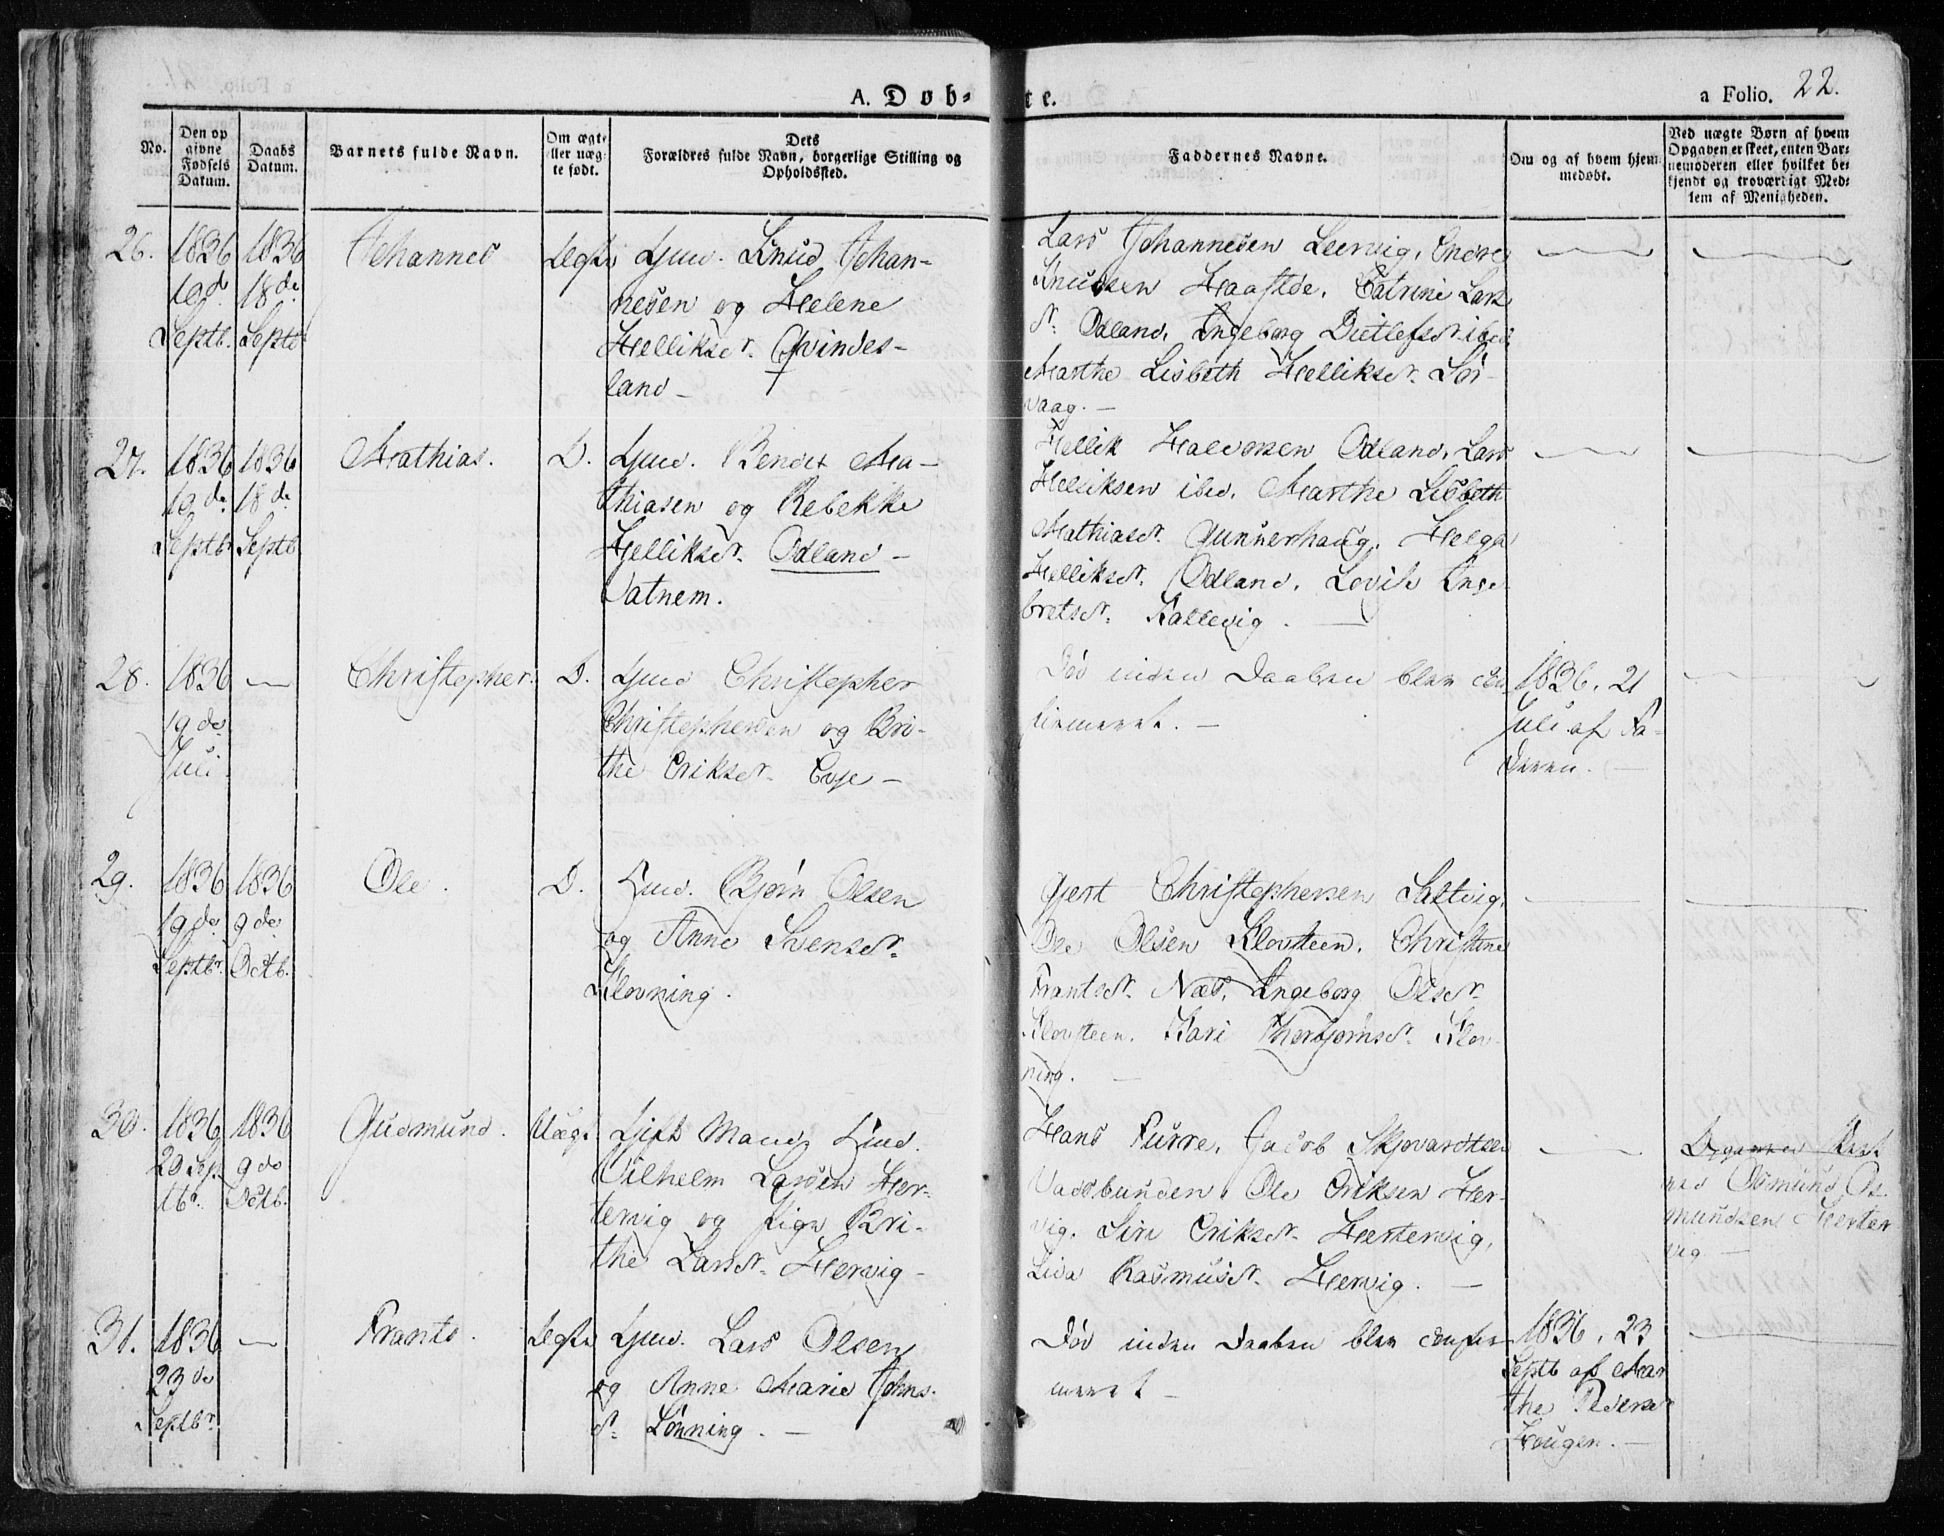 A. Døb-
te.
a Folio. 22.
No.
Den op
givne
Fødsels
Datum.
Daabs
Datum.
Barnets fulde Navn.
Om ægte
eller uæg-
te født.
Dets
Forældres fulde Navn, borgerlige Stilling og
Opholdssted.
Faddernes Navne.
Om og af hvem hjem-
medøbt.
Ved uægte Børn af hvem
Opgaven er skeet, enten Bar-
nemoderen eller hvilket be-
kjendt og troværdigt Med-
lem af Menigheden.
26.
1836
19 d.
Septb.
1836
18 de
Septb
Johannes
Ægte
Gmd. Knud Johan-
nesen og Helene
Helliksd. Qvindes-
land -
Lars Johannesen Leervig, Endre
Knudsen Haastøe, Catrine Lars
d. Odland, Ingeborg Ditlefsd. ibid,
Marthe Lisbeth Helliksd. Sør-
vaag. -
27.
1836
19 de
Septbr
1836
18 de
Septb
Mathias.
D.
Gmd. Bendix Ma-
thiasen og Rebekke
Helliksd. Odland -
Satnem.
Hellik Halvorsen Odland, Lars
Helliksen ibid, Marthe Lisbeth
Mathiasd. Gunnershaug, Helga
Helliksd. Odland, Lovise Inge-
bretsd. Kallevig. -
28.
1836
19 de
Juli
-
Christopher.
D.
Gmd Christopher
Christophersen og Bri-
the Eriksd. Evje -
Død inden Daaben blev con
firmeret. -
1836, 21
Juli af Fa-
deren. -
29.
1836
19 de
Septbr.
1836
9 de
Octb.
Ole.
D.
Huusmd. Bjørn Olsen
og Anne Svensd.
Klovning.
Gjert Christophersen Saltvig,
Ole Olsen Klovsteen, Christine
Frantsd. Næs, Ingeborg Olsd.
Klovsteen, Kari Thorbjørnsd. Klov-
ning. -
30.
1836
20 Sep
tbr.
1836
9 de
Octb.
Gudmund.
Uægte
Gift Mand
Vilhelm Larsen Her-
tervig og Pige Bri-
the Larsd. Hervig -
Hans Furre, Jacob Skjovardtsen
Vadsbunden, Ole Eriksen Her-
vig, Siri Eriksd. Hertervig,
Lida Rasmusd. Hervig. -
ved Osmund Os-
mundsen Herter
vig -
31.
1836
23 de
Septbr.
-
Frants.
Ægte
Gmd. Lars Olsen
og Anne Marie Johns-
d. Lønning. -
Død inden Daaben blev confir
meret -
1836, 23
Septb af Mar
the Pedersd
Hougen. -